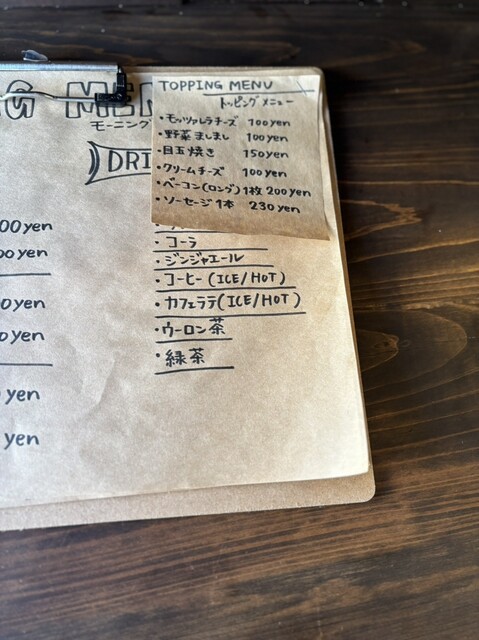 G MEN
モーニング
DRI
TOPPING MENU
トッピングメニュー
・モッツァレラチーズ 100yen
・野菜ましまし 100yen
・目玉焼き 150yen
・クリームチーズ 100yen
・ベーコン(ロング)1枚 200yen
・ソーセージ1本 230yen
・コーラ
・ジンジャエール
・コーヒー(ICE/HOT)
・カフェラテ(ICE/HOT)
・ウーロン茶
・緑茶
00yen
00yen
0yen
0yen
yen
yen